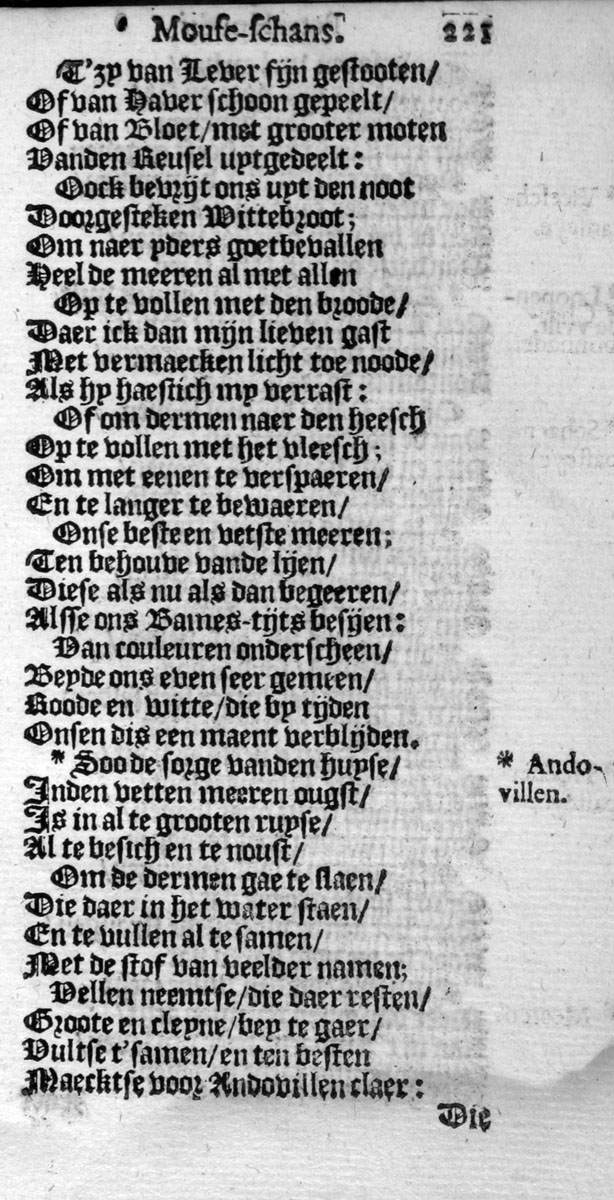 Mouse-schans. 221
T'zy van Lever fijn gestooten/
Of van Haver schoon gepeelt/
Of van Bloet/met grooter moten
Vanden Reusel uytgedeelt:
Oock bevrijt ons uyt den noot
Doorgesteken Wittebroot;
Om naer yders goetbevallen
Heel de meeren al met allen
Op te vollen met den broode/
Daer ick dan mijn lieven gast
Met vermaecken licht toe noode/
Als hy haestich my verrast:
Of om dermen naer den heesch
Op te vollen met het vleesch;
Om met eenen te verspaeren/
En te langer te bewaeren/
Onse beste en vetste meeren;
Ten behouve vande lijen/
Diese als nu als dan begeeren/
Alsse ons Bames-tijts besijen:
Van couleuren onderscheen/
Beyde ons even seer gemeen/
Roode en witte/die by tijden
Onsen dis een maent verblijden.
* Soo de sorge vanden huyse/
* Ando-
Inden vetten meeren ougst/
villen.
Is in al te grooten ruyse/
Al te besich en te noust/
Om de dermen gae te slaen/
Die daer in het water staen/
En te vullen al te samen/
Met de stof van veelder namen;
Vellen neemtse/die daer resten/
Groote en cleyne/bey te gaer/
Vultse t'samen/en ten besten
Maecktse voor Andovillen claer:
Die